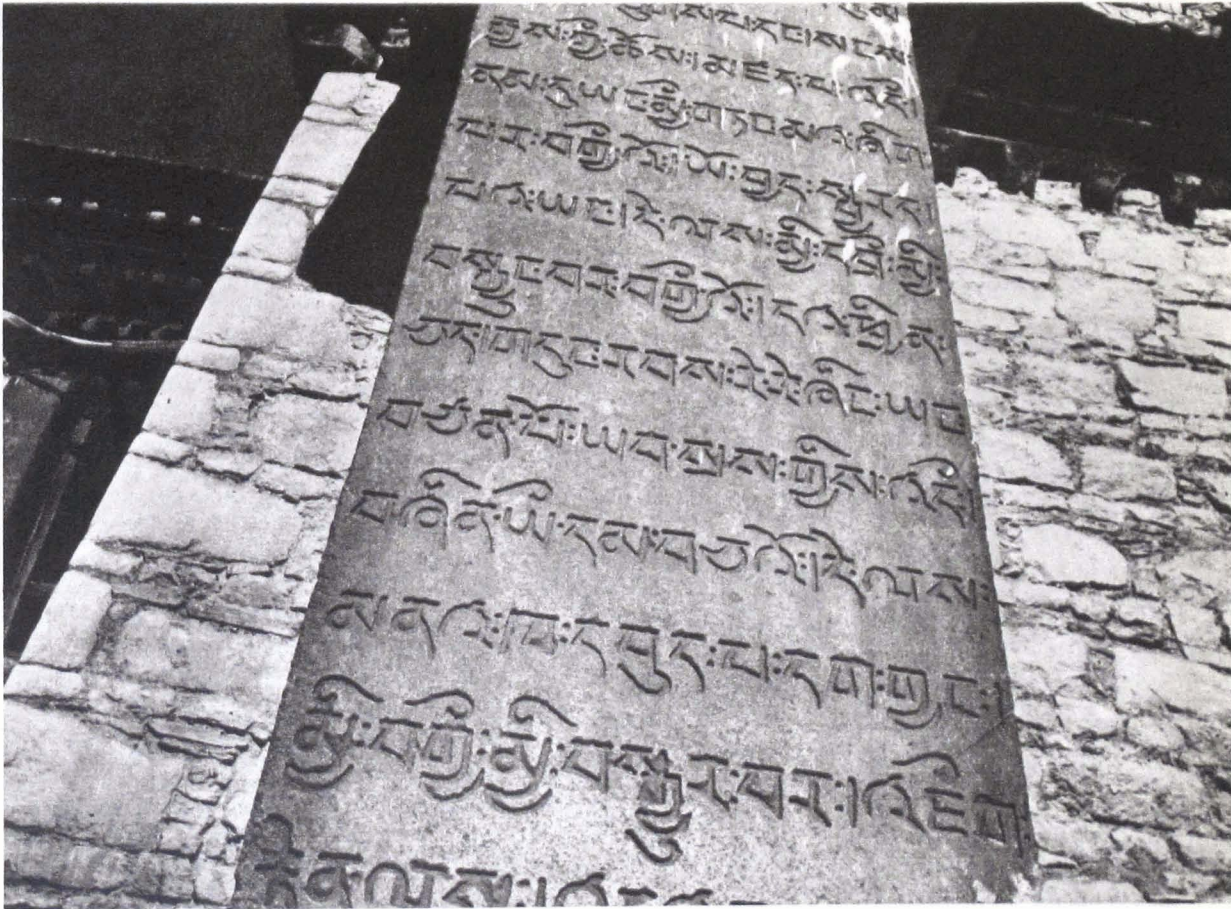 རྒྱས་ཀྱི་ཆོས།མཛད་པ་འདི།
ནམ་དུ་ཡང་མྱི་གཏང་མ་ཞིག
པར་བགྱིའོ།ཡོ་བྱད་སྦྱརད།
པའ་ཡང་།དེ་ལས་མྱི་དབྲི་མྱི
བསྙུང་བར་བགྱིའོ།དའ་ཕྱིན་
ཆད།གདུང་རབས་རེ་རེ་ཞིང་ཡང
བཙན་པོ་ཡབ་སྲས་ཀྱིས་འདི
བཞིན་ཡི་དམ་བཅའོ།དེ་ལས་
མནའ་ཁ་དབུད་པ་དག་ཀྱང་
མྱི་བགྱི་མྱི་བསྒྱུར་བར།འཇིག
རྟེན་ལས།